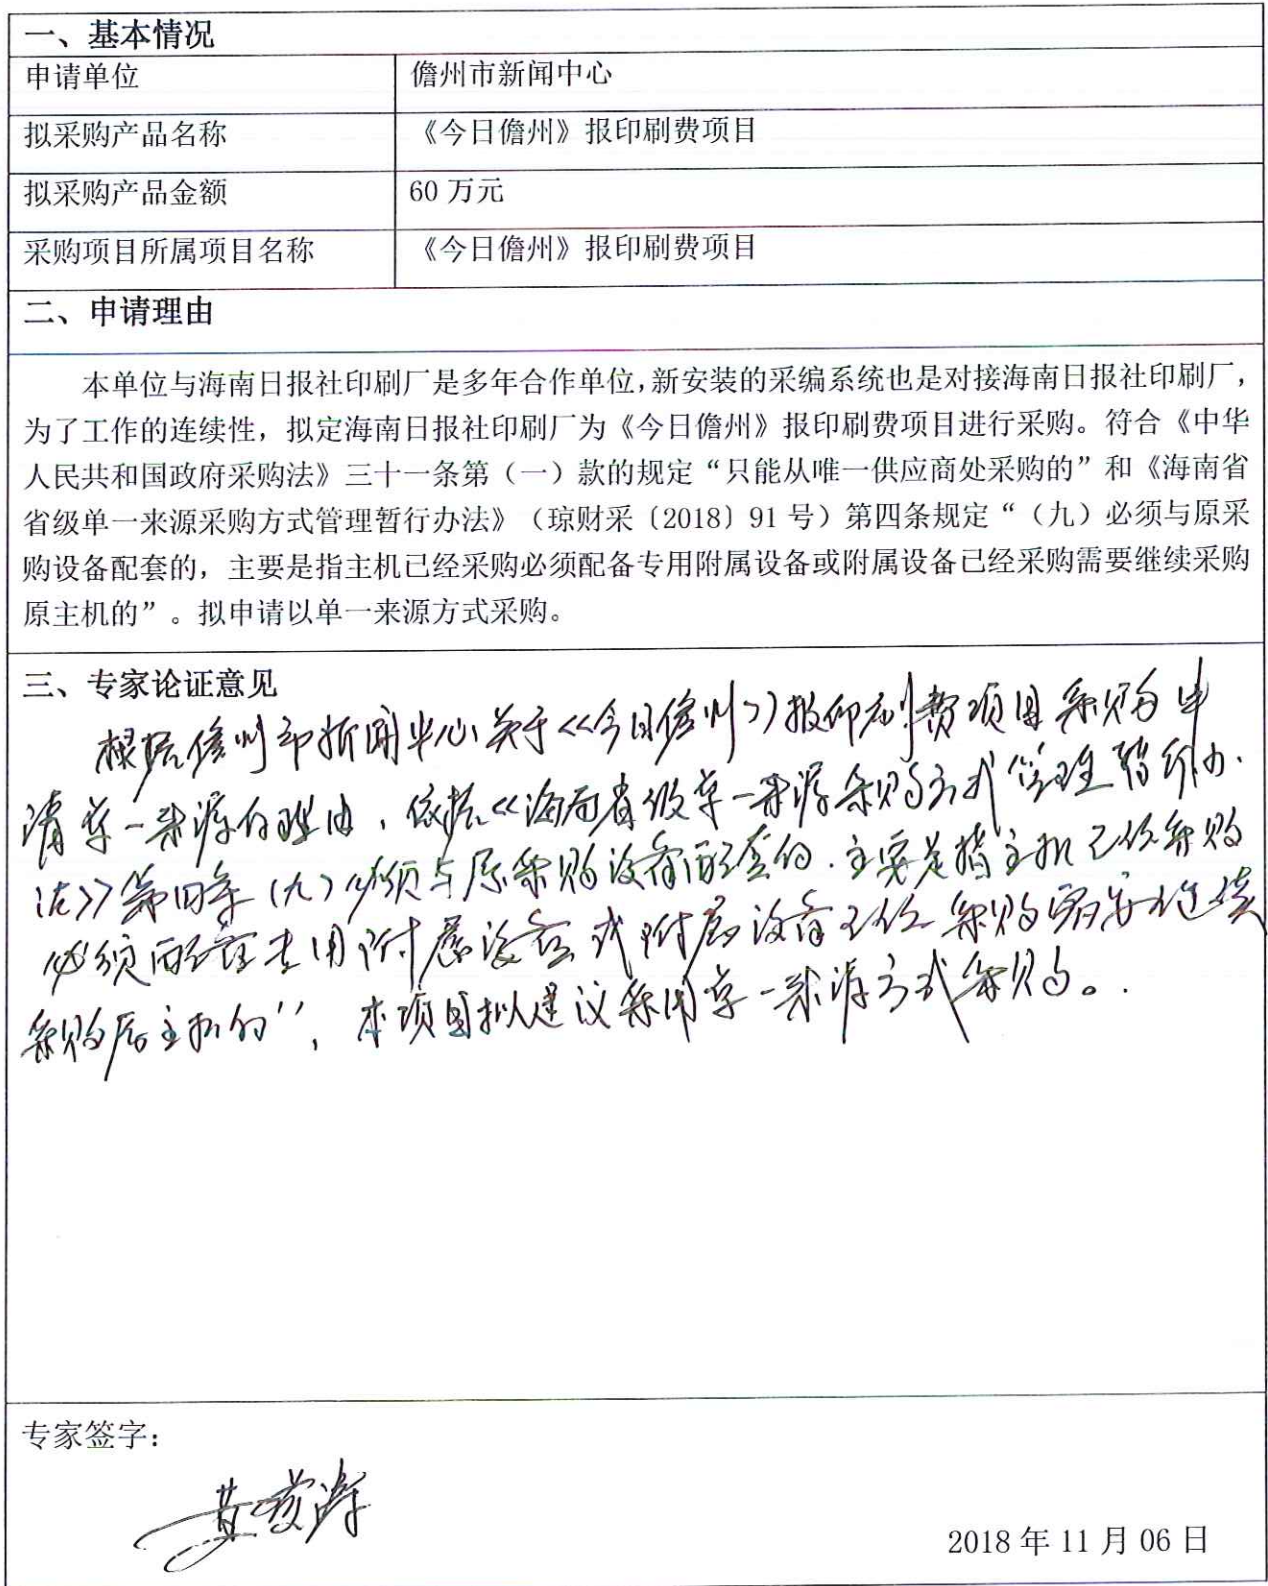 一、基本情况
申请单位 儋州市新闻中心
拟采购产品名称 《今日儋州》报印刷费项目
拟采购产品金额 60 万元
采购项目所属项目名称 《今日儋州》报印刷费项目
二、申请理由
本单位与海南日报社印刷厂是多年合作单位,新安装的采编系统也是对接海南日报社印刷厂,
为了工作的连续性，拟定海南日报社印刷厂为《今日儋州》报印刷费项目进行采购。符合《中华
人民共和国政府采购法》三十一条第（一）款的规定“只能从唯一供应商处采购的”和《海南省
省级单一来源采购方式管理暂行办法》（琼财采〔2018〕91 号）第四条规定“（九）必须与原采
购设备配套的，主要是指主机已经采购必须配备专用附属设备或附属设备已经采购需要继续采购
原主机的”。拟申请以单一来源方式采购。
三、专家论证意见
根据儋州市新闻中心关于《今日儋州》报印刷费项目采购申
请单一来源的理由，依据《海南省级单一来源采购方式管理暂行办
法》第四条（九）必须与原采购设备配套的，主要是指主机已经采购
必须配套专用附属设备或附属设备已经采购需要继续
采购原主机的”，本项目拟建议采用单一来源方式采购。
专家签字：
2018 年 11 月 06 日